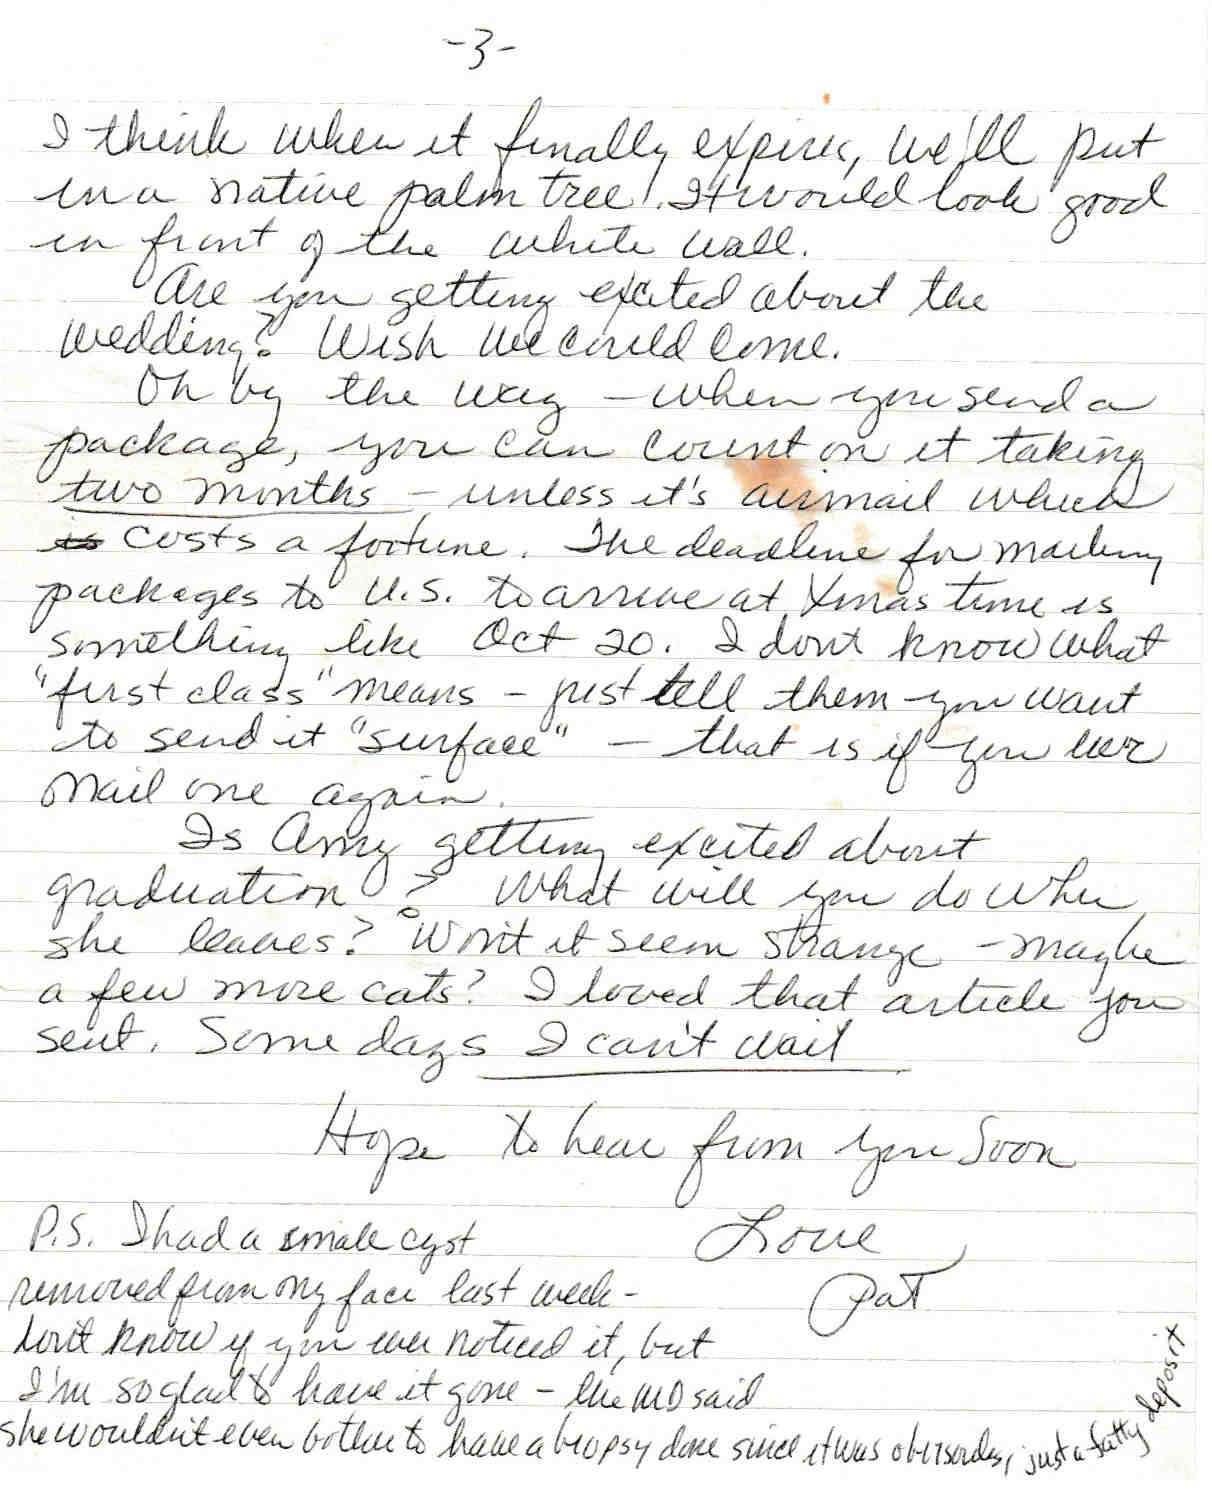 -3-
I think when it finally expires, we'll put
in a native palm tree! It would look good
in front of the white wall.
Are you getting excited about the
wedding? Wish we could come.
Oh by the way - when you send a
package, you can count on it taking
two months - unless it's airmail which
is costs a fortune. The deadline for mailing
packages to U.S. to arrive at Xmas time is
something like Oct 20. I dont know what
"first class" means - just tell them you want
to send it "surface" - that is if you ever
mail one again.
Is Amy getting excited about
graduation? What will you do when
she leaves? Won't it seem strange - maybe
a few more cats? I loved that article you
sent. Some days I can't wait
Hope to hear from you soon
Love
Pat
P.S. I had a small cyst
removed from my face last week -
don't know if you ever noticed it, but
I'm so glad to have it gone - the MD said
she wouldn't even bother to have a biopsy done since it was obviously, just a fatty deposit